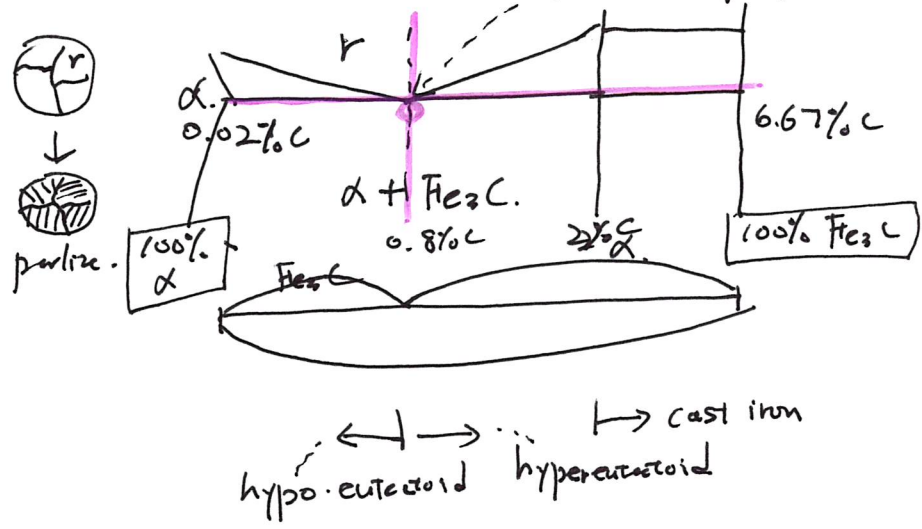 r
r
α.
0.02%C
6.67%C
α + Fe3C.
0.8%C
2%C
100% α
100% Fe3C
perlize.
Fe3C
α.
cast iron
hypo.eutectoid
hypereutectoid